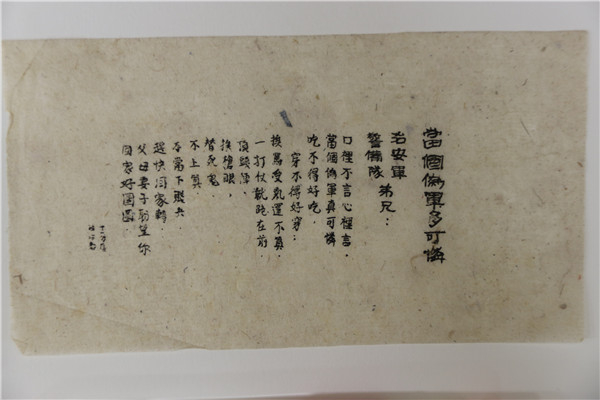 當個偽軍多可憐
治安軍
警備隊 弟兄：
口裡不言心裡言，
當個偽軍真可憐
吃不得好吃，
穿不得好穿；
挨罵受氣還不算，
一打仗就跑在前，
頂頭陣，
挨槍眼，
替死鬼
不上算
當下賤兵
趕快回家轉
父母妻子盼望你
回家好團圓